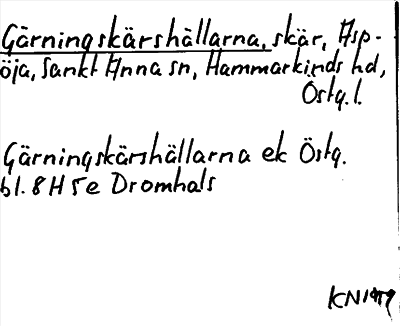 Gärningskärshällarna, skär, Asp-
öja, Sankt Anna sn, Hammarkinds hd,
Östg. l.
Gärningskärshällarna ek Östg.
bl. 8H 5e Dromhals